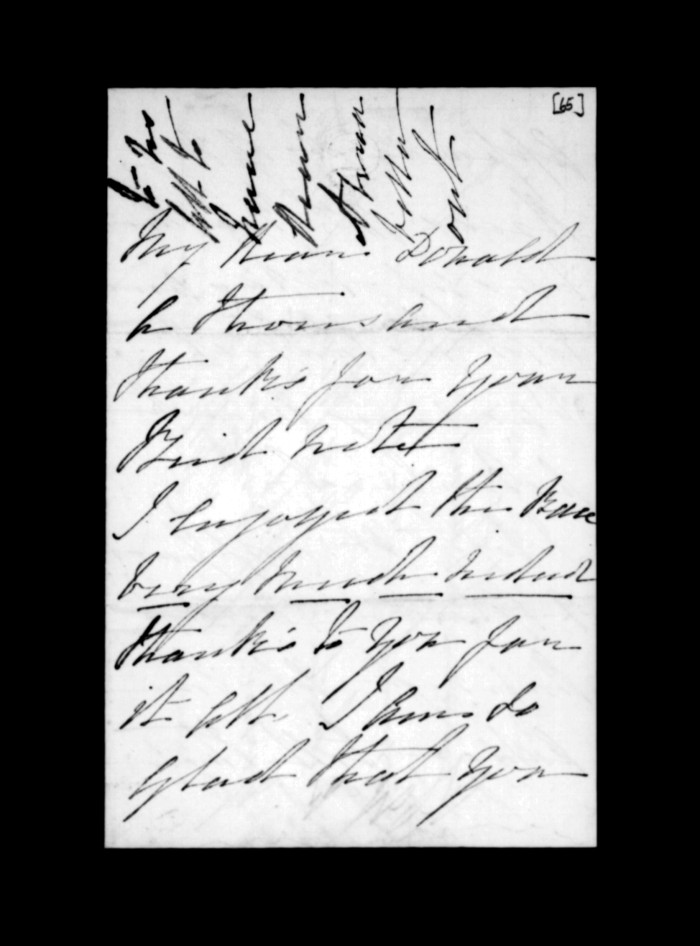 [65]
My dear Donald
A thousand
thanks for your
Kind note
I enjoyed the Race
very much indeed
thanks to you for
it all. I am so
glad that you
to
all to
have
them
out